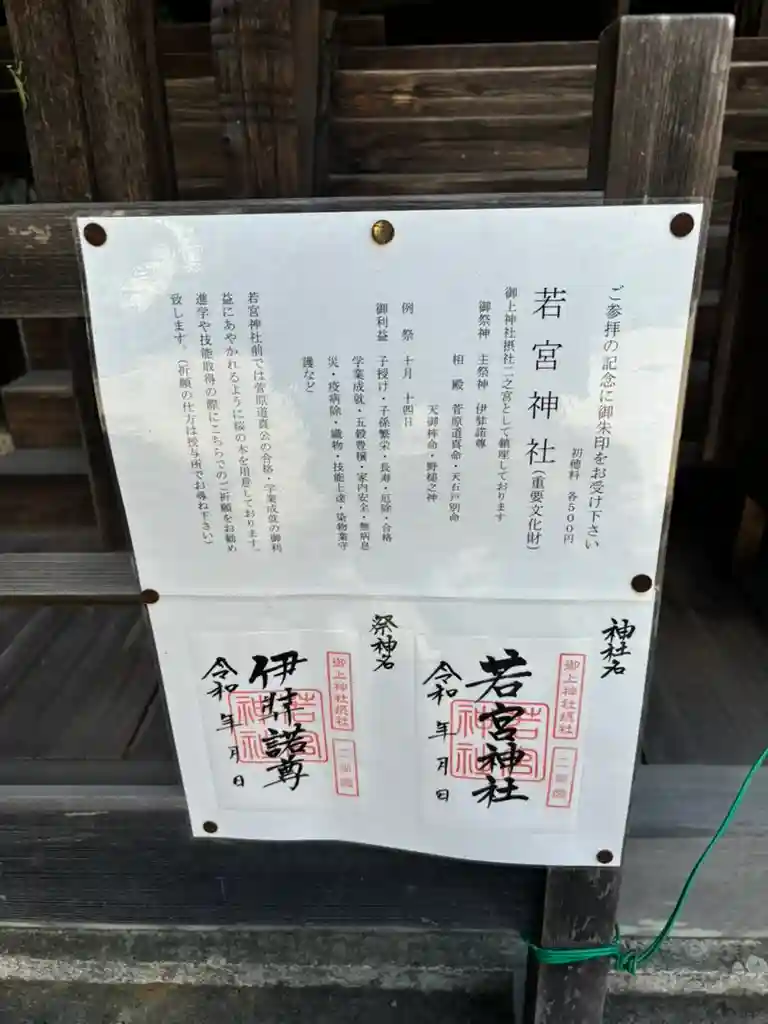 ご参拝の記念に御朱印をお受け下さい
初穂料 各500円
若宮神社(重要文化財)
御上神社摂社二之宮として鎮座しております
御祭神 主祭神 伊弉諾尊
相殿 菅原道真命・天石戸別命
天御柱命・野槌之神
例祭 十月 十四日
御利益 子授け・子孫繁栄・長寿・厄除・合格
学業成就・五穀豊穣・家内安全・無病息
災・疫病除・織物・技能上達・染物業守
護など
若宮神社前では菅原道真公の合格・学業成就の御利
益にあやかれるように桜の木を用意しております。
進学や技能取得の際にこちらでのご祈願をお勧め
致します。(祈願の仕方は授与所でお尋ね下さい)
神社名
御上神社摂社
若宮神社
若宮神社
令和 年 月 日
祭神名
御上神社摂社
伊弉諾尊
若宮神社
令和 年 月 日